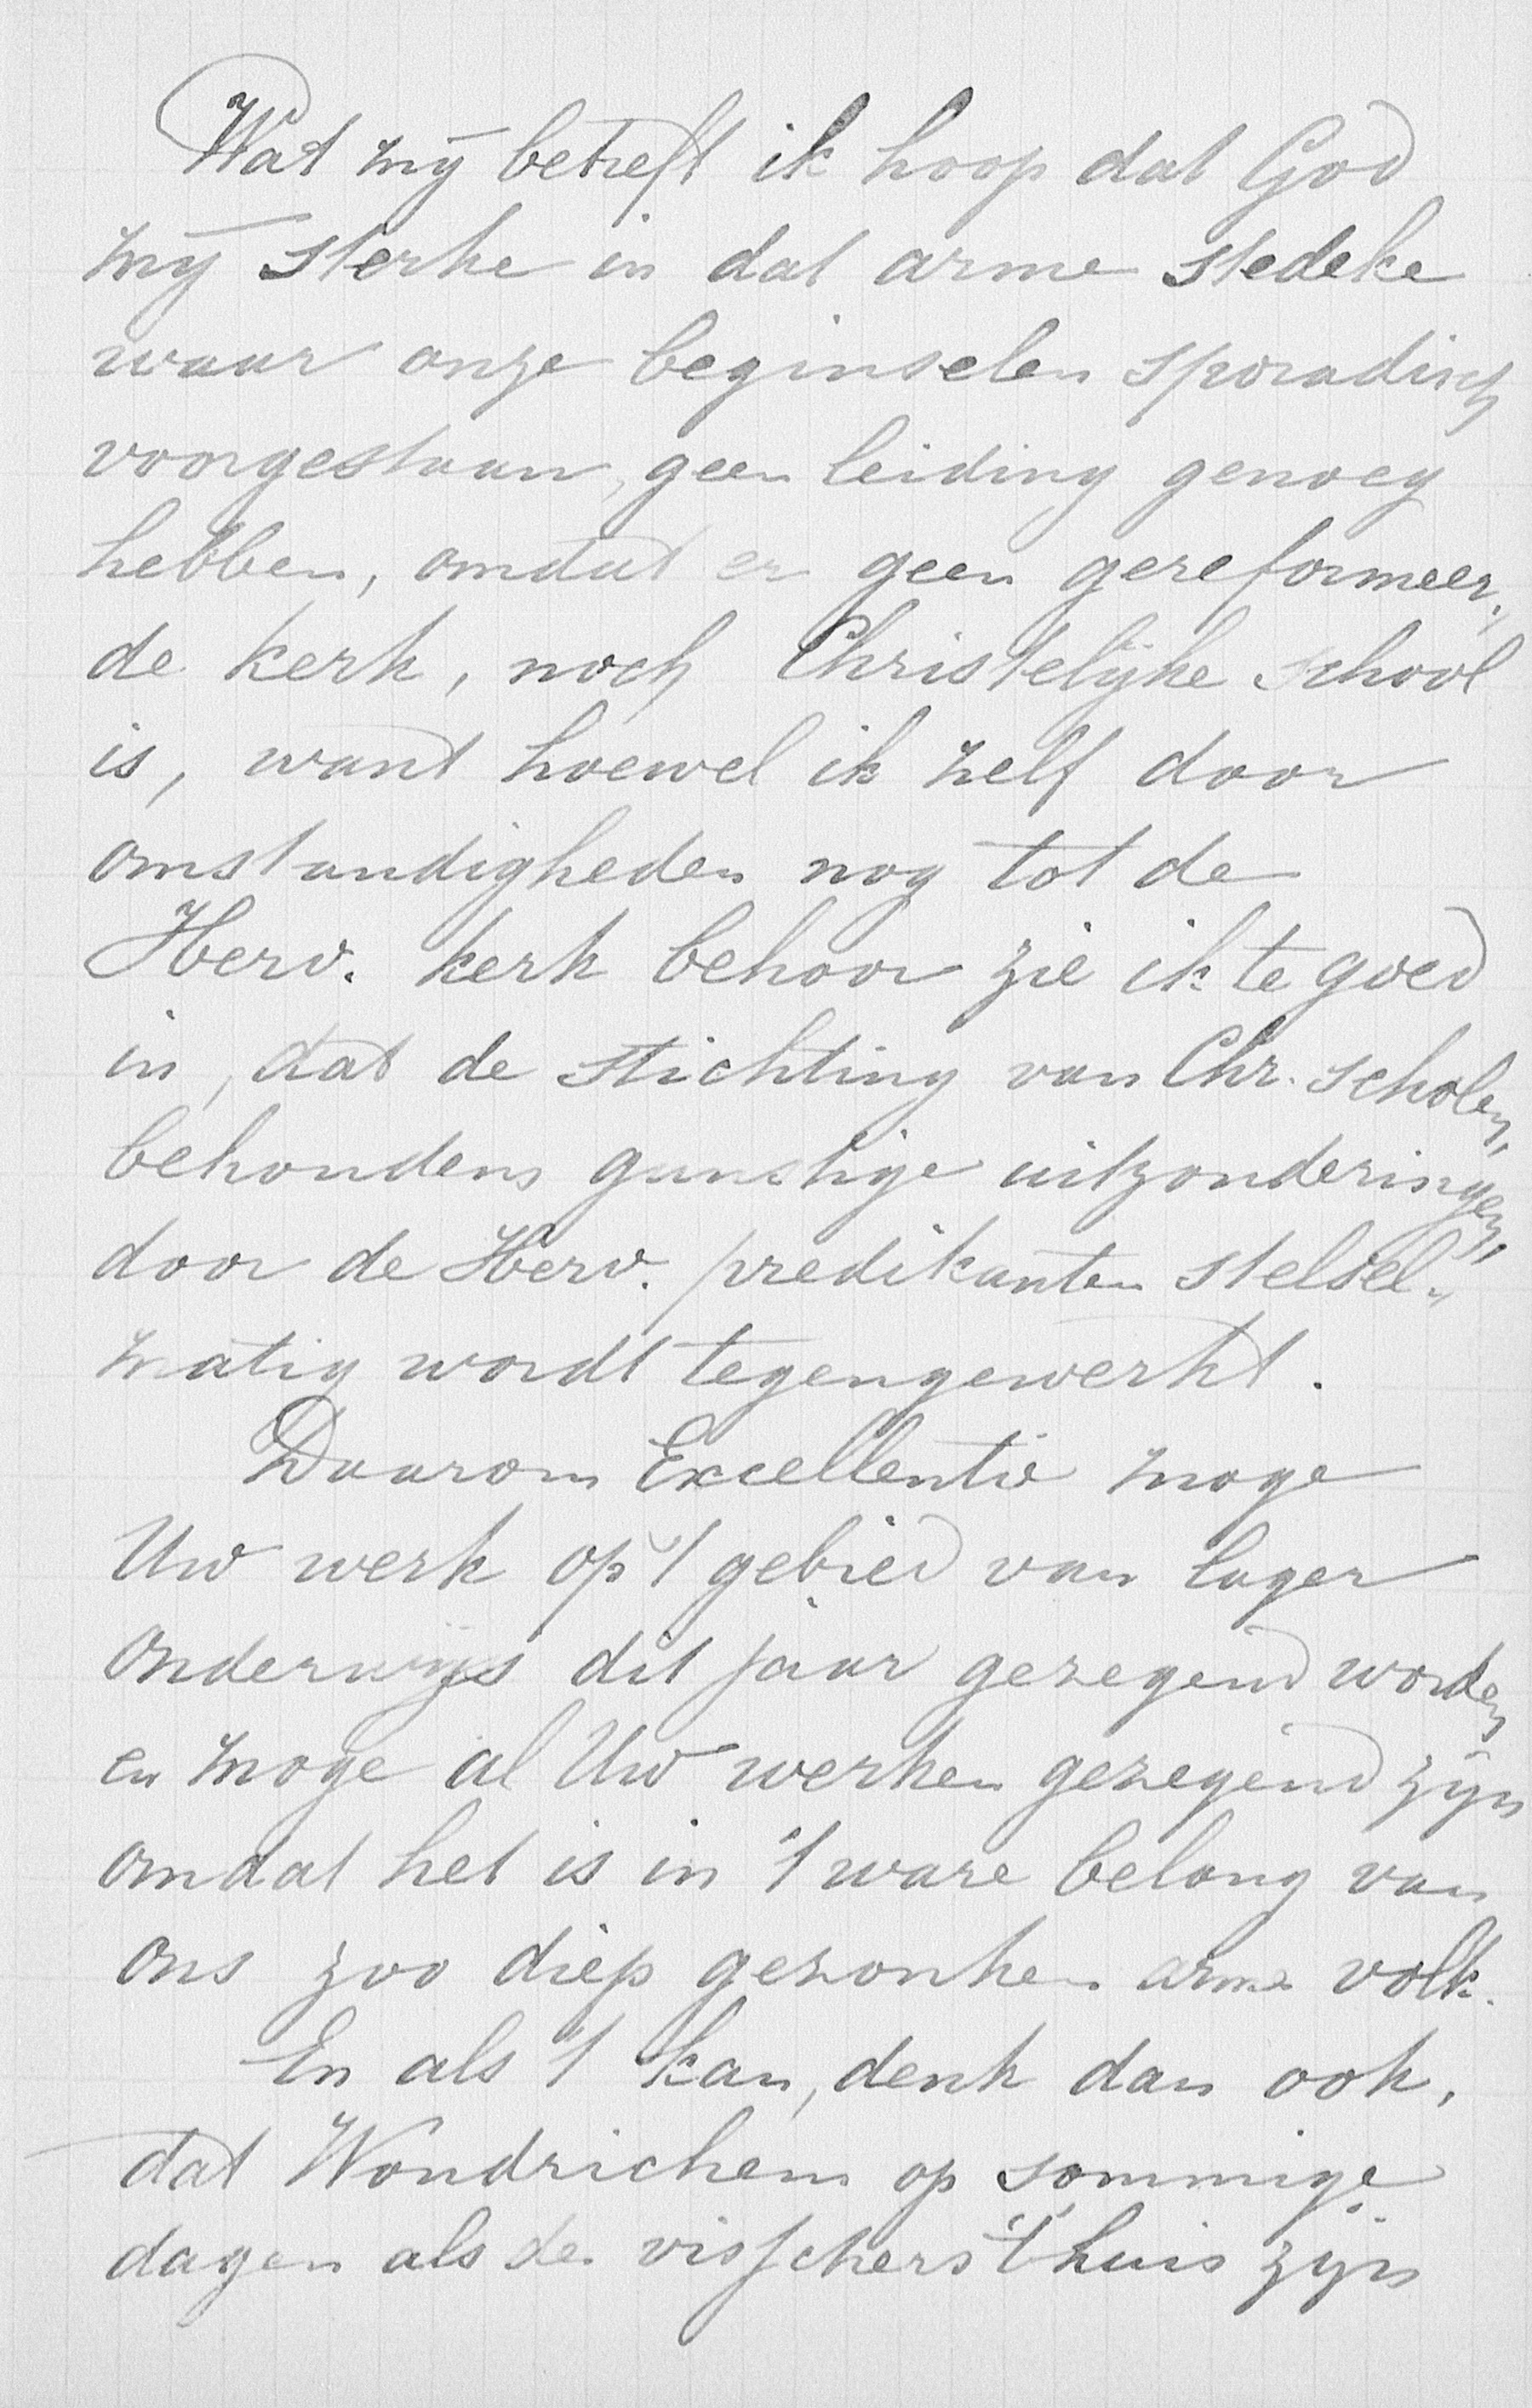 Wat mij betreft ik hoop dat God
mij sterke in dat arme stedeke
waar onze beginselen sporadisch
voorgestaan, geen leiding genoeg
hebben, omdat er geen gereformeer„
de kerk, noch Christelijke school
is, want hoewel ik zelf door
omstandigheden nog tot de
Herv. kerk behoor zie ik te goed
in, dat de stichting van Chr. scholen,
behoudens gunstige uitzonderingen,
door de Herv. predikanten stelsel„
matig wordt tegengewerkt.
Daarom Excellentie moge
Uw werk op 't gebied van lager
Onderwijs dit jaar gezegend worden
en moge al Uw werken gezegend zijn
omdat het is in 't ware belang van
ons zoo diep gezonken arme volk.
En als 't kan, denk dan ook,
dat Woudrichem op sommige
dagen als de visschers t'huis zijn